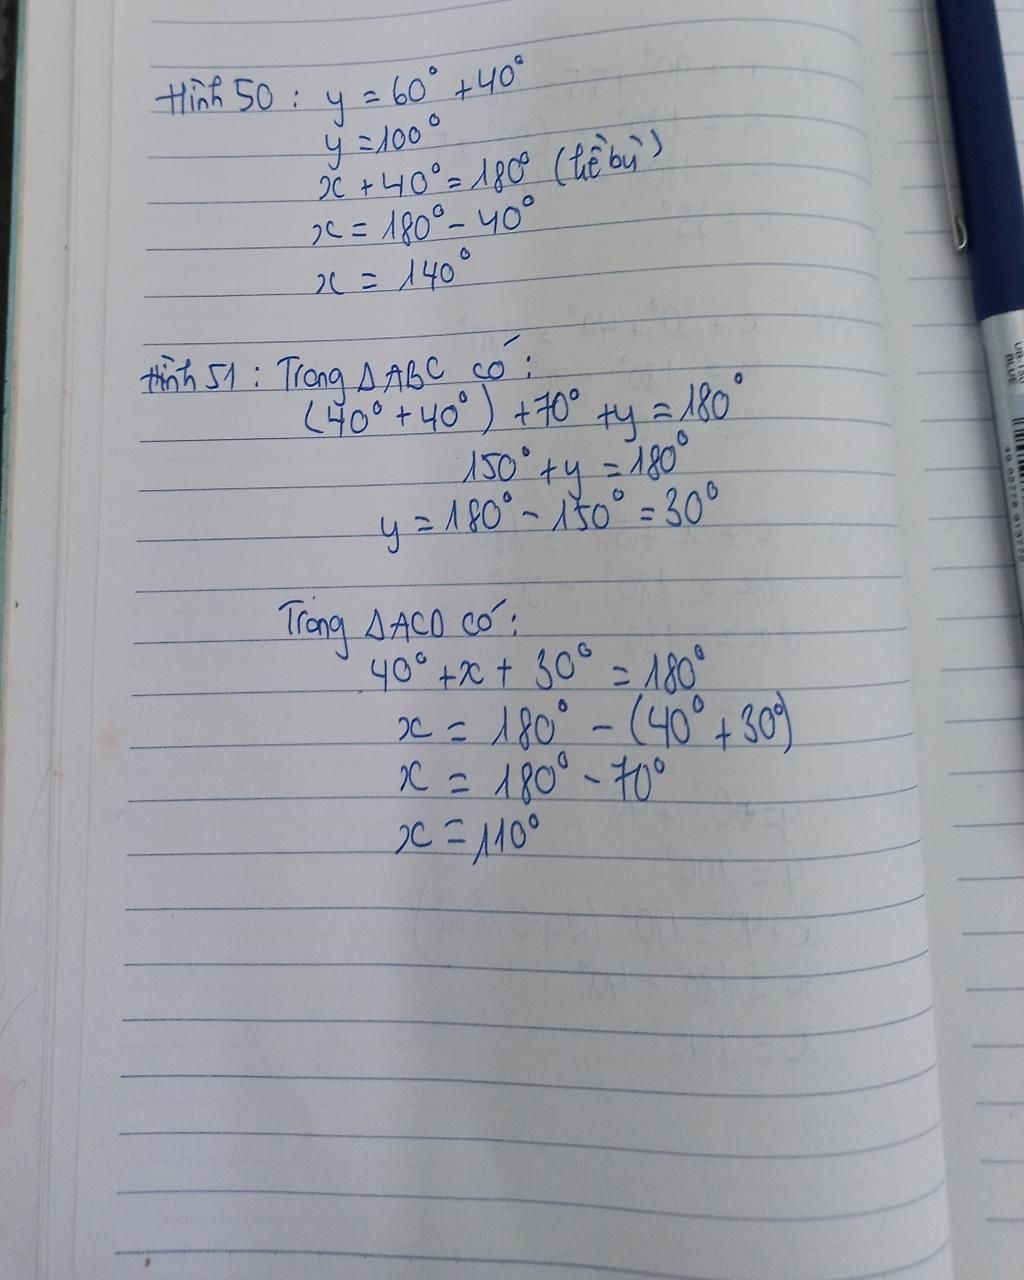 Hình 50 : y = 60° + 40°
y = 100°
x + 40° = 180° (kề bù)
x = 180° - 40°
x = 140°
Hình 51 : Trong ΔABC có :
(40° + 40°) + 70° + y = 180°
150° + y = 180°
y = 180° - 150° = 30°
Trong ΔACD có :
40° + x + 30° = 180°
x = 180° - (40° + 30°)
x = 180° - 70°
x = 110°